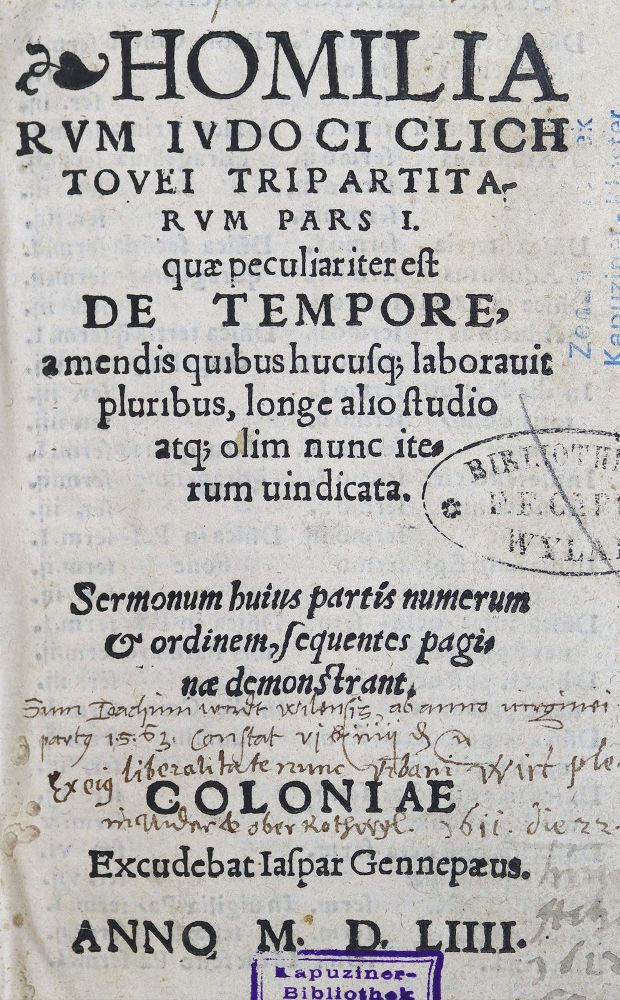 HOMILIA
RVM IVDOCI CLICH
TOVEI TRIPARTITA-
RVM PARS I.
quæ peculiariter est
DE TEMPORE,
a mendis quibus hucusq; laborauit
pluribus, longe alio studio
atq; olim nunc ite-
rum uindicata.
BIBLIOTHE
WYLA
Sermonum huius partis numerum
& ordinem, sequentes pagi-
næ demonstrant.
Sum Joachimi wilensis, ab anno virginei
partus 1563. Constat
Ex eius liberalitate nunc Vrbani Wirt ple.
COLONIAE
ober Rothwyl. 1611. die 22.
Excudebat Iaspar Gennepæus.
ANNO M. D. LIIII.
Kapuziner-
Bibliothek